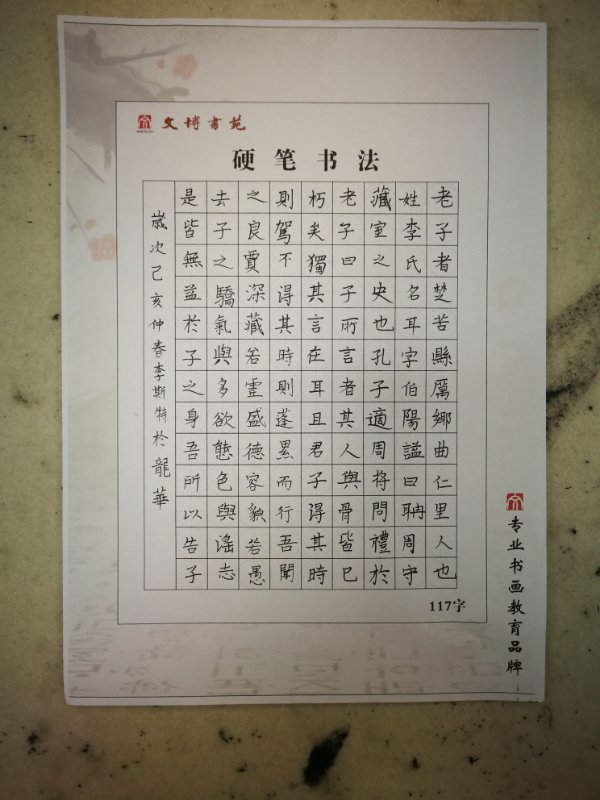 文博書苑
硬笔书法
老子者楚苦縣厲鄉曲仁里人也
姓李氏名耳字伯陽謚曰聃周守
藏室之史也孔子適周將問禮於
老子曰子所言者其人與骨皆已
朽矣獨其言在耳且君子得其時
則駕不得其時則蓬累而行吾聞
之良賈深藏若虛盛德容貌若愚
去子之驕氣與多欲態色與淫志
是皆無益於子之身吾所以告子
歲次己亥仲春李斯特於龍華
117字
专业书画教育品牌